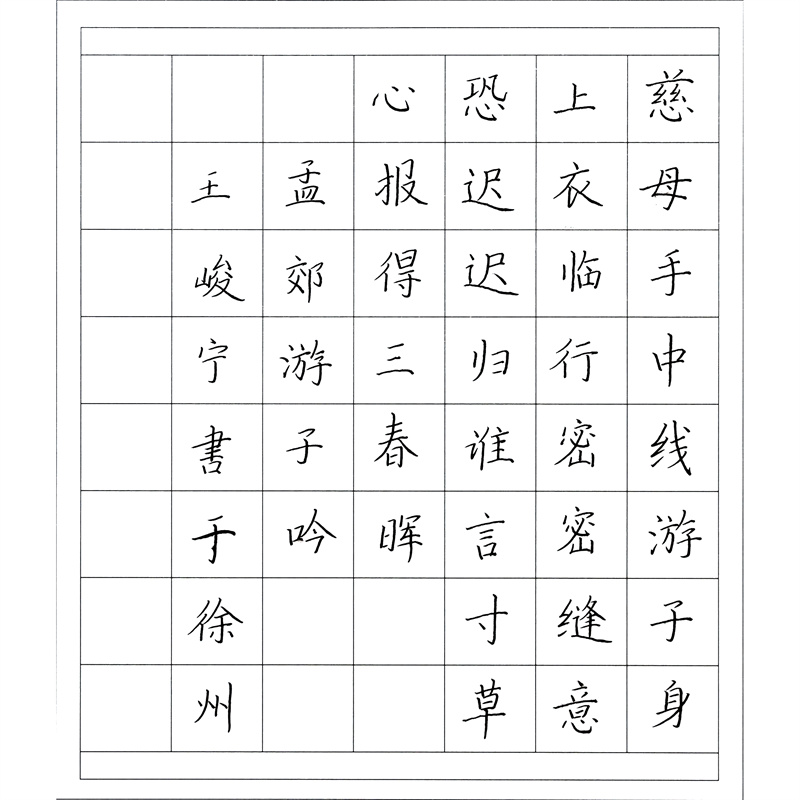 慈母手中线游子身
上衣临行密密缝意
恐迟迟归谁言寸草
心报得三春晖
孟郊游子吟
王峻宁書于徐州